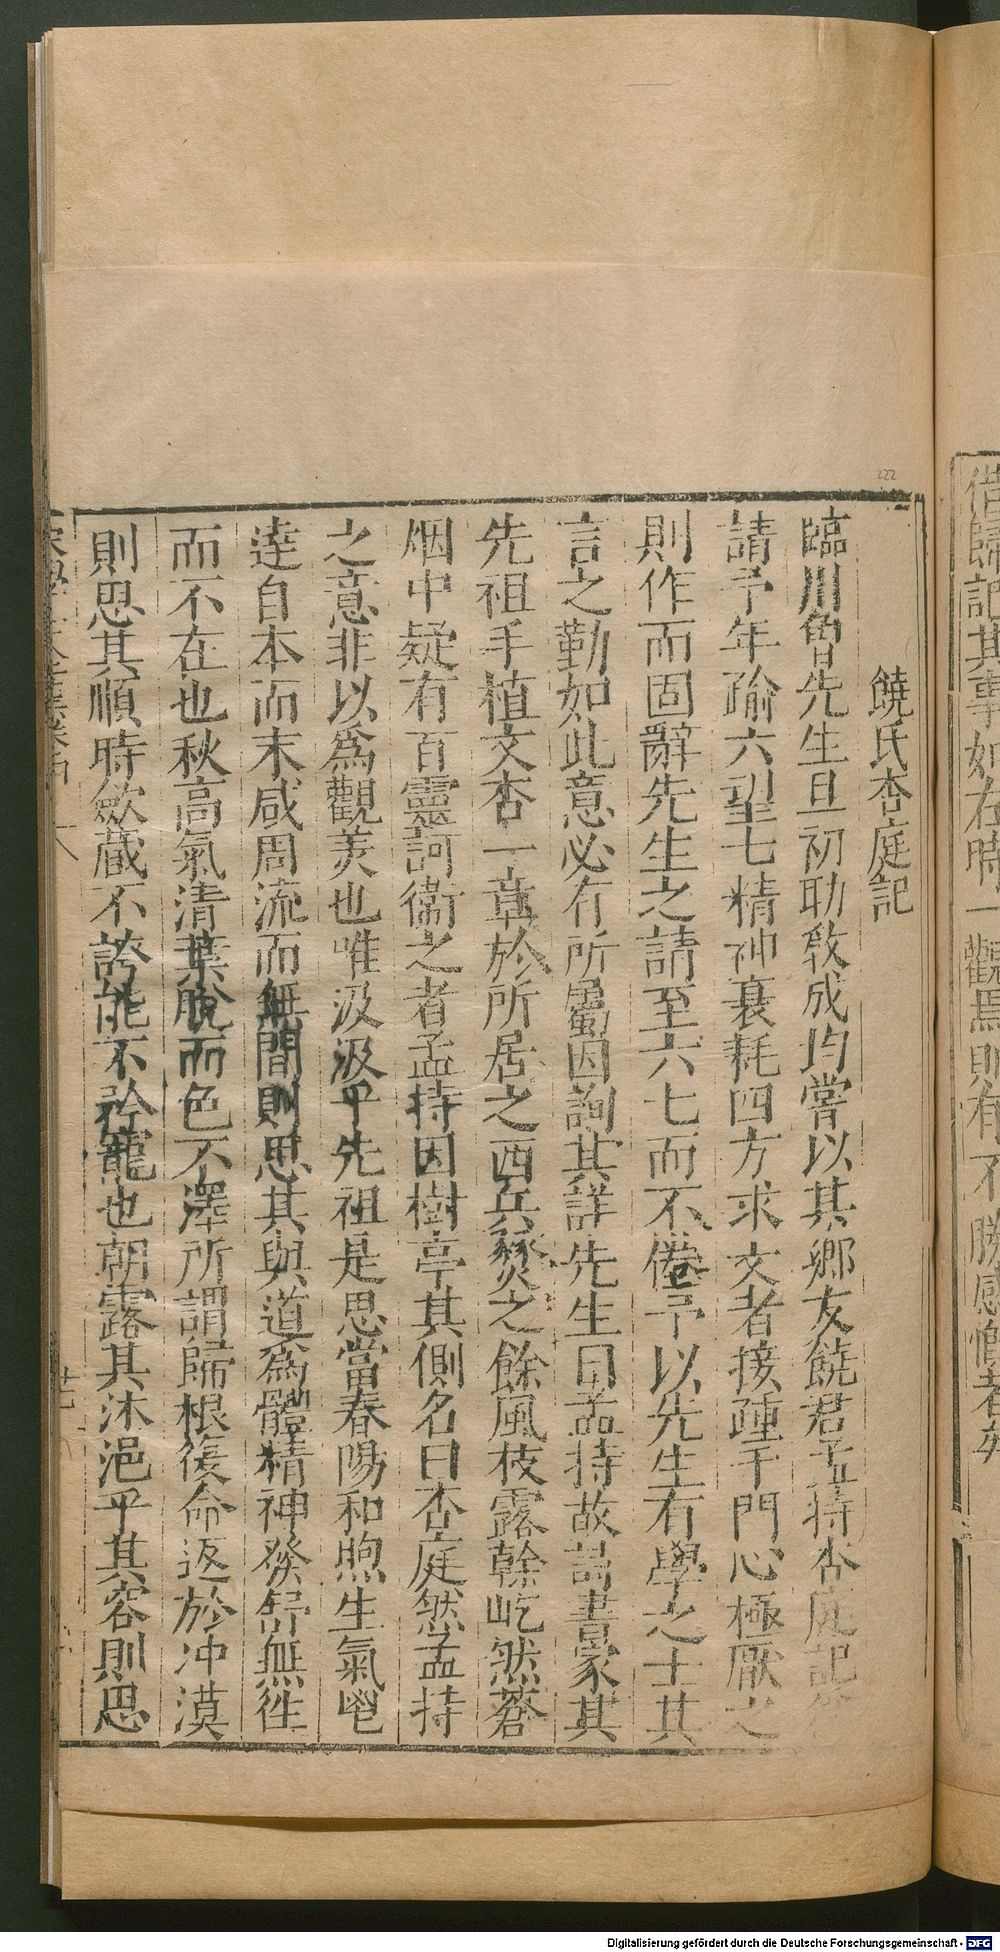 饒氏杏庭記
臨川魯先生旦初助敎成均嘗以其鄉友饒君孟持杏庭記
請予年踰六望七精神衰耗四方求文者接踵于門心極厭之
則作而固辭先生之請至六七而不倦予以先生有學之士其
言之勤如此意必有所屬因詢其詳先生曰孟持故詩書家其
先祖手植文杏一章於所居之西兵燹之餘風枝露幹屹然蒼
烟中疑有百靈訶衞之者孟持因樹亭其側名曰杏庭然孟持
之意非以爲觀美也唯汲汲乎先祖是思當春陽和煦生氣鬯
達自本而末咸周流而無間則思其與道爲體精神發舒無徃
而不在也秋高氣清葉脫而色不澤所謂歸根復命返於冲漠
則思其順時斂蔵不誇能不矜寵也朝露其沐浥乎其容則思
借歸記其事如在時一觀焉則有不勝感慨者矣
222
Digitalisierung gefördert durch die Deutsche Forschungsgemeinschaft - DFG